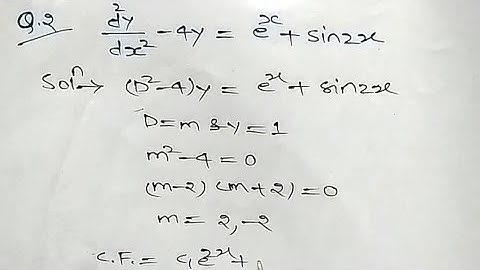 Q.2 d²y/dx² - 4y = eˣ + sin2x
Solⁿ→ (D²-4)y = eˣ + sin2x
D=m & y=1
m²-4=0
(m-2) (m+2)=0
m= 2,-2
C.F.= C₁e²ˣ+